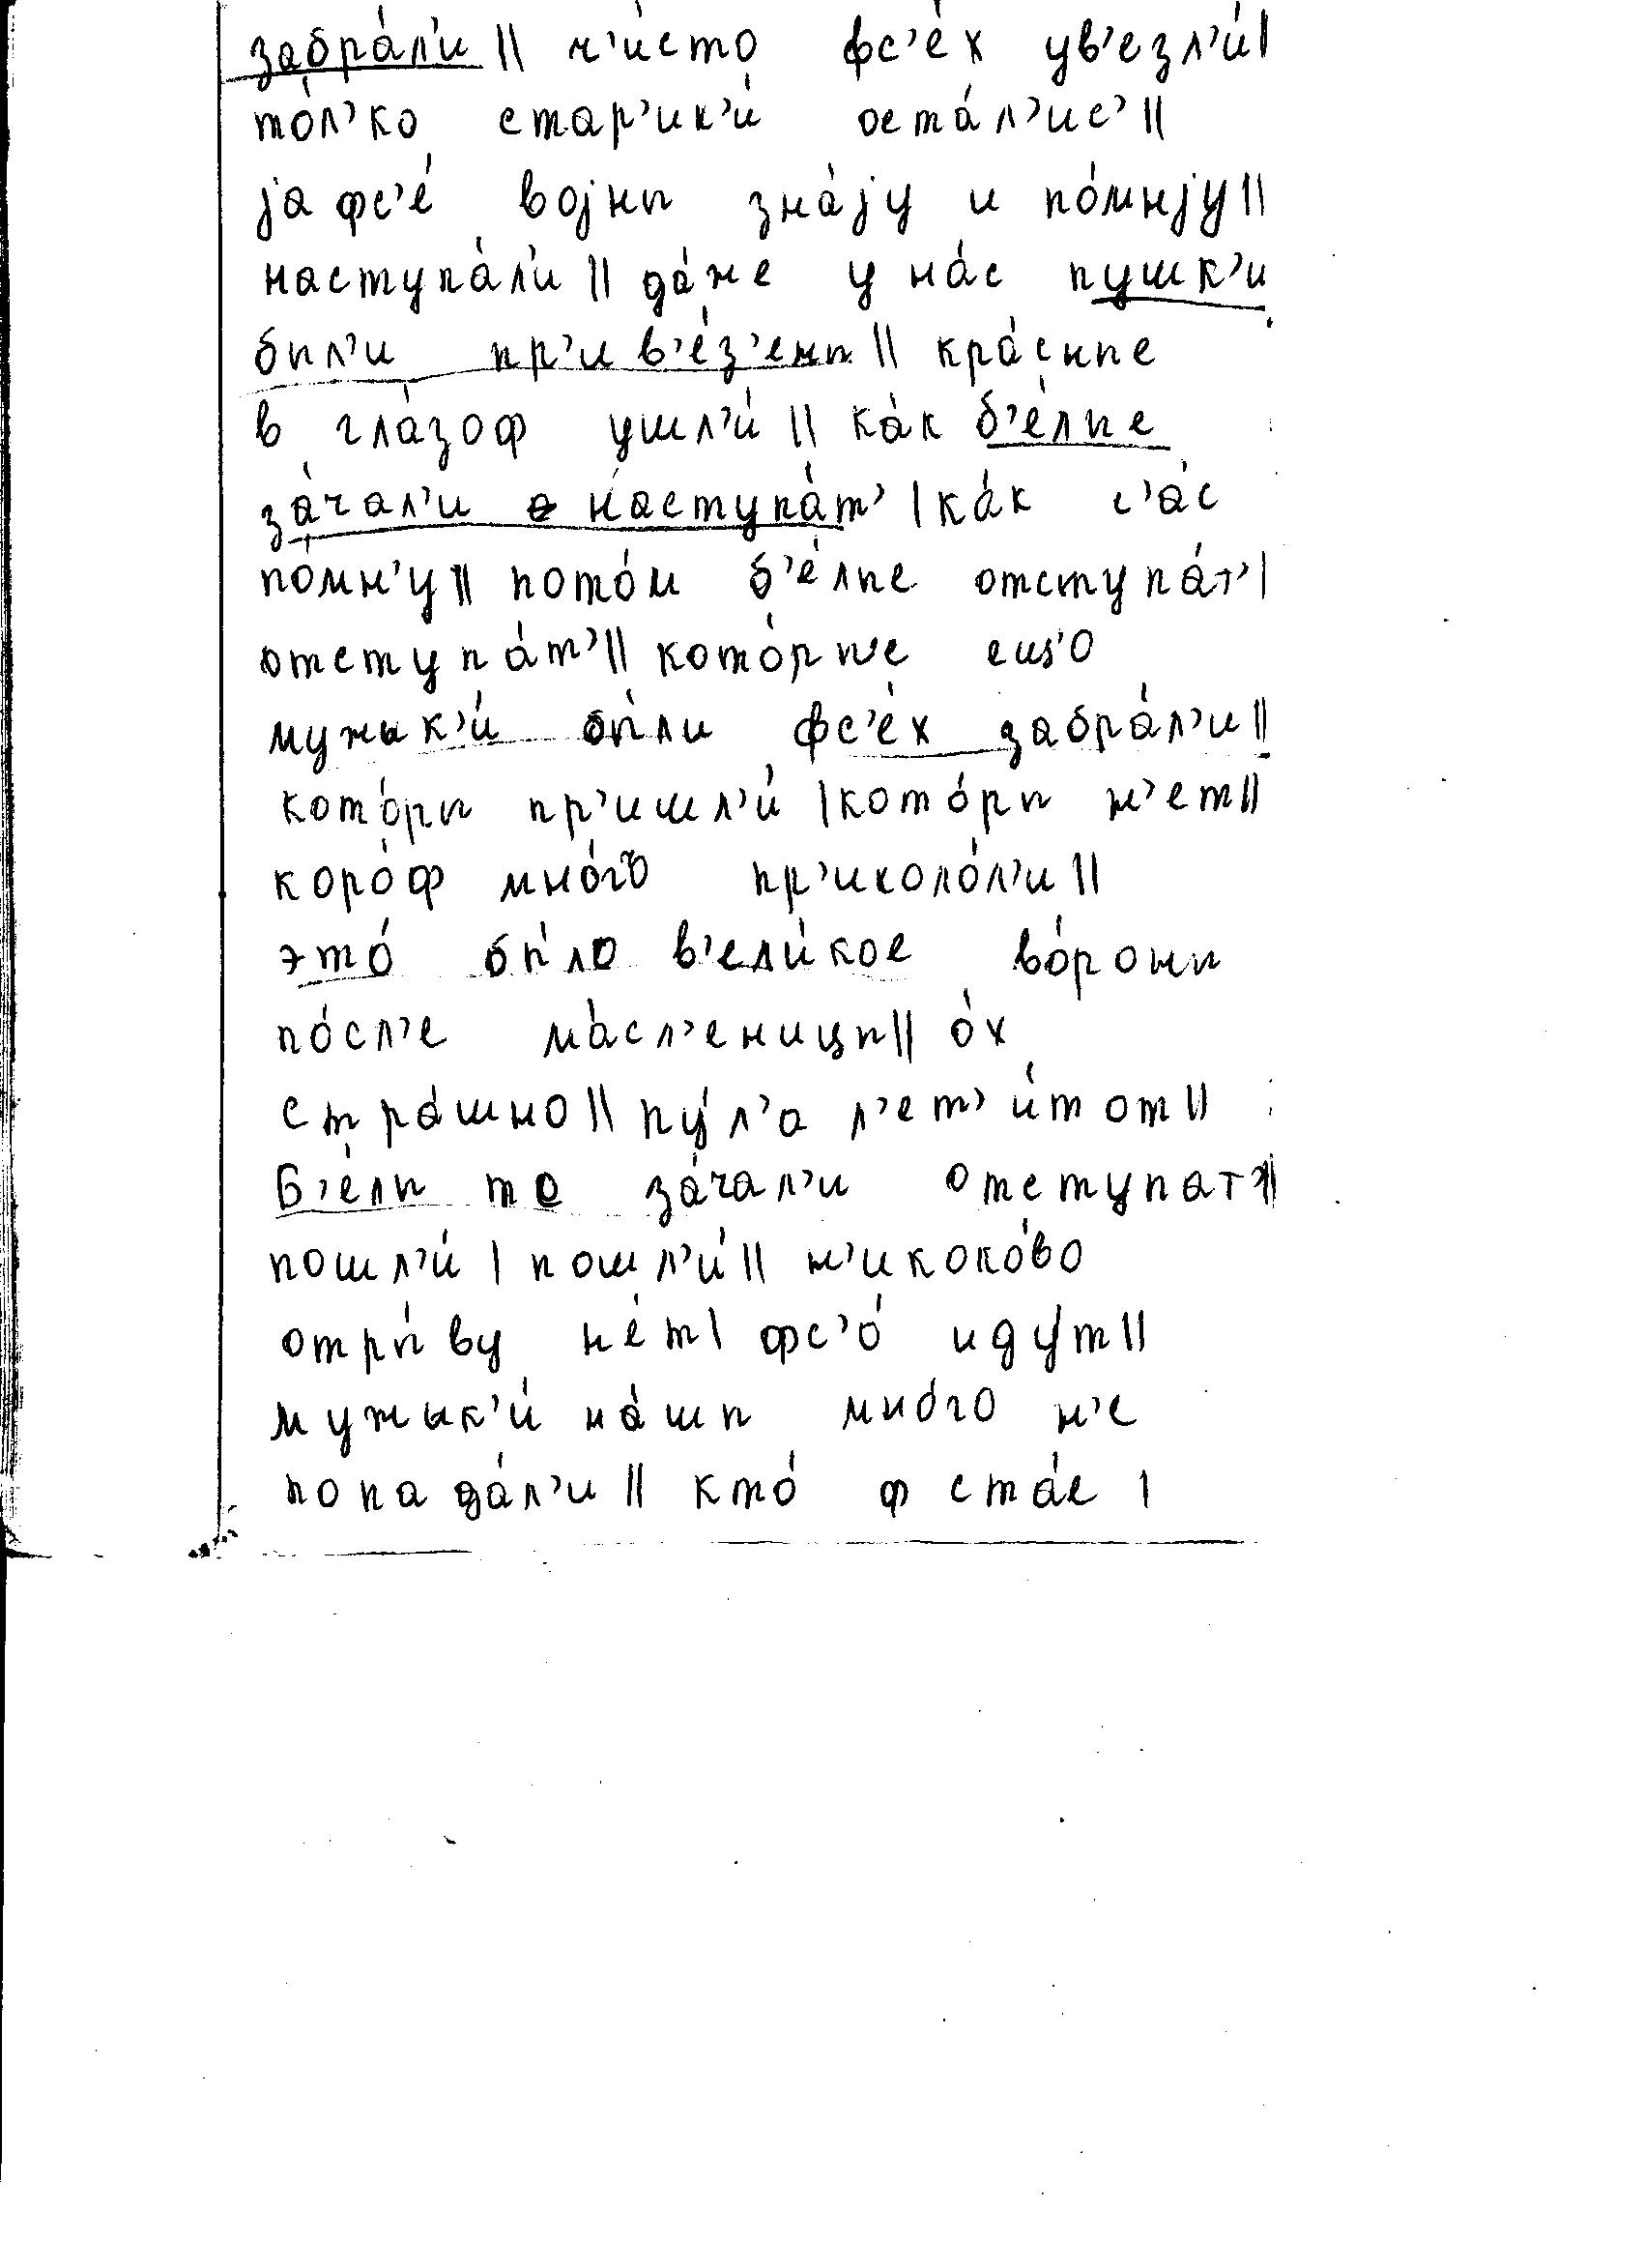 забра́л'и || ч'и́сто фс'е́х ув'езл'и́ |
то́л'ко стар'ик'и́ оста́л'ис' ||
jа фс'е́ воjны зна́jу и по́мнjу ||
наступа́л'и || да́же у на́с пушк'и
был'и пр'ив'е́з'ены || кра́сные
в гла́зоф ушл'и́ || ка́к б'е́лые
за́чал'и наступа́т' | ка́к с'а́с
по́мн'у || пото́м б'е́лые отступа́т' |
отступа́т' || кото́рые
мужык'и́ бы́ли фс'е́х забра́л'и ||
кото́ры пр'ишл'и́ | кото́ры н'ет ||
коро́ф мно́гъ пр'иколо́л'и ||
это́ бы́ло в'ели́кое во́роны
по́сл'е ма́сл'еницы || о́х
стра́шно || пу́л'а л'ет'и́т от ||
б'е́лы то за́чал'и отступат' ||
пошл'и́ | пошл'и́ || н'икоко́во
отры́ву не́т | фс'о́ иду́т ||
мужык'и́ на́шы мно́го н'е
попада́л'и || кто́ ф ста́е |